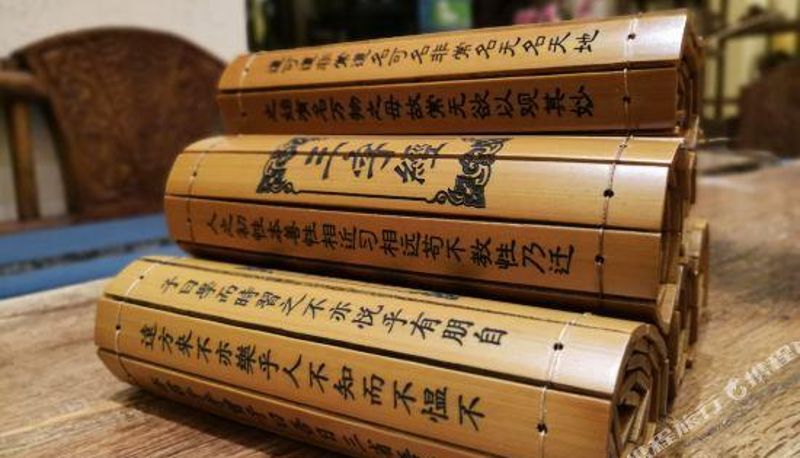 道可道非常道名可名非常名无名天地
之始有名万物之母故常无欲以观其妙
三字經
人之初性本善性相近习相远苟不教性乃迁
子曰學而時習之不亦悦乎有朋自
遠方來不亦樂乎人不知而不愠不
子曰吾日三省吾
携程旅行